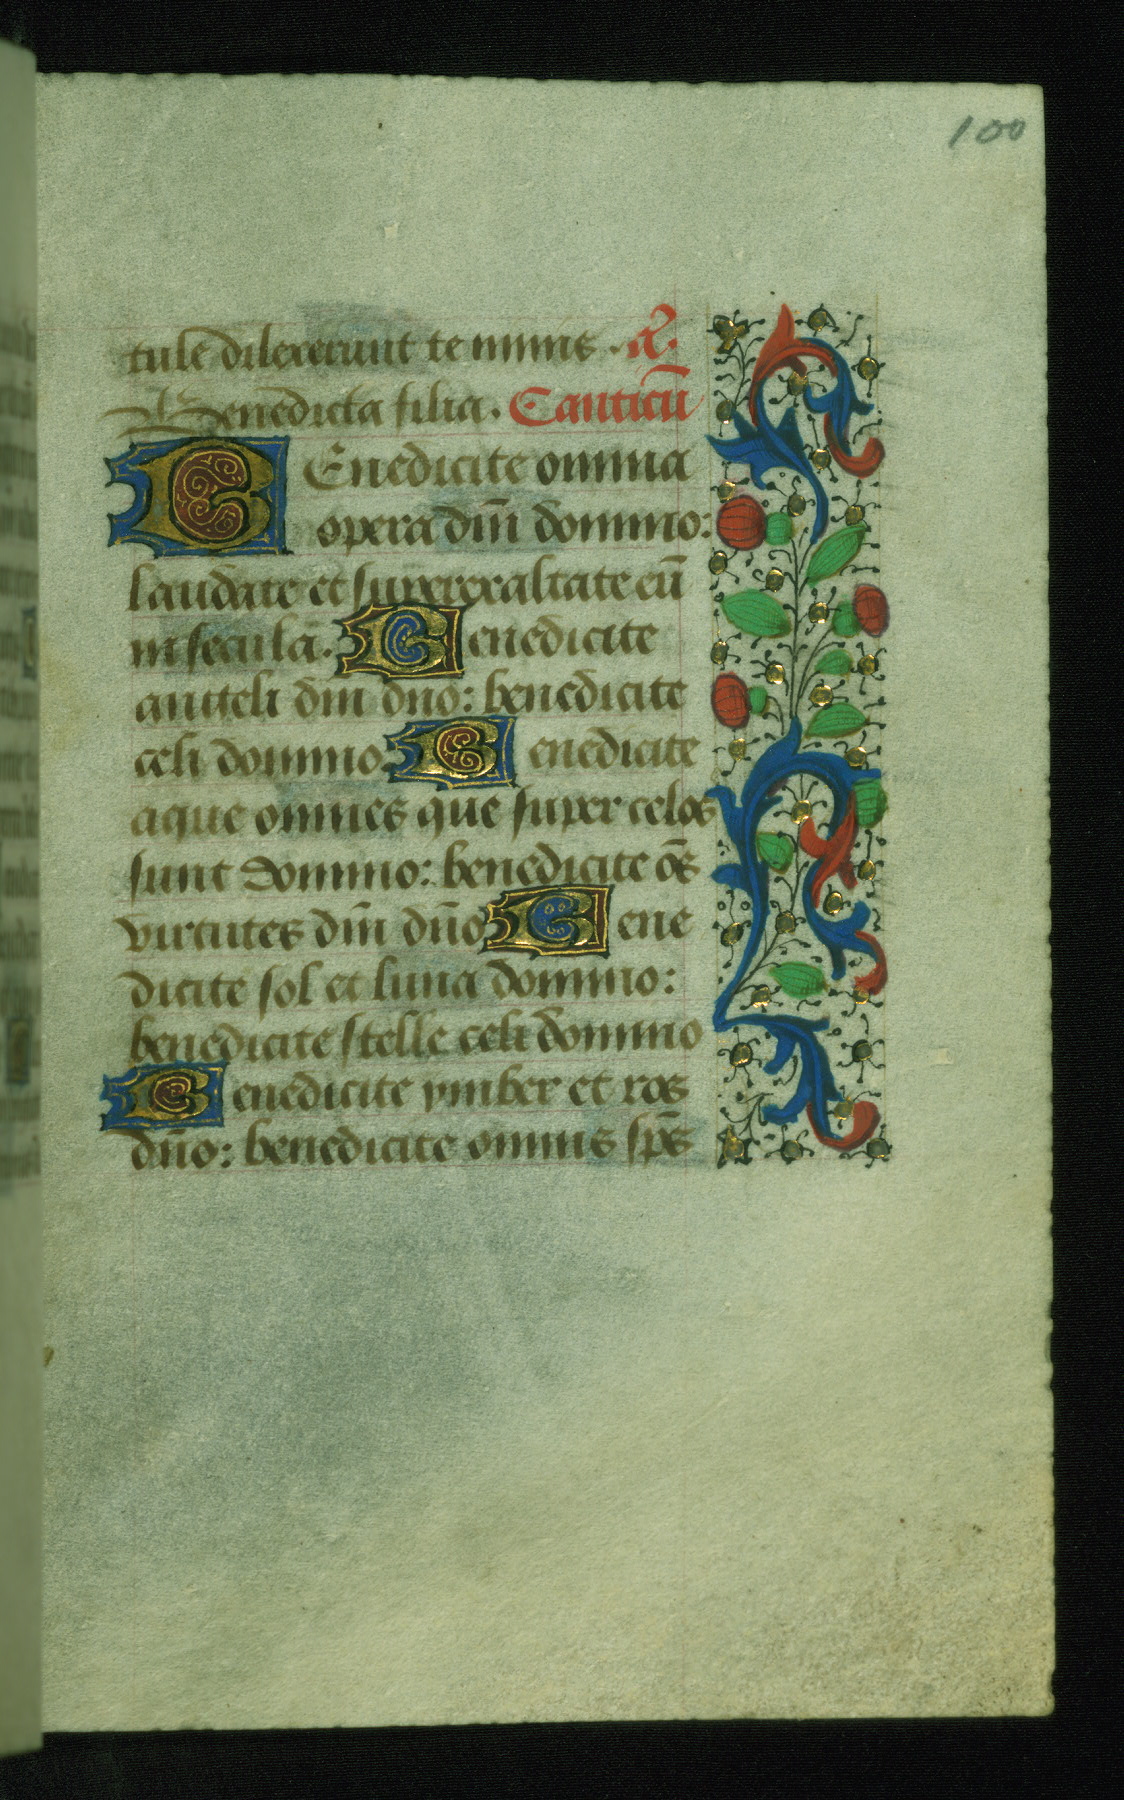 100
tule dilexerunt te nimis. A.
Benedicta filia. Canticū
BEnedicite omnia
opera dn̄i domino:
laudate et superexaltate eū
in secula. Benedicite
angeli dn̄i dn̄o: benedicite
celi domino Benedicite
aque omnes que super celos
sunt domino: benedicite oēs
virtutes dn̄i dn̄o Bene
dicite sol et luna domino:
benedicite stelle celi domino
Benedicite ymber et ros
dn̄o: benedicite omnis sp̄s